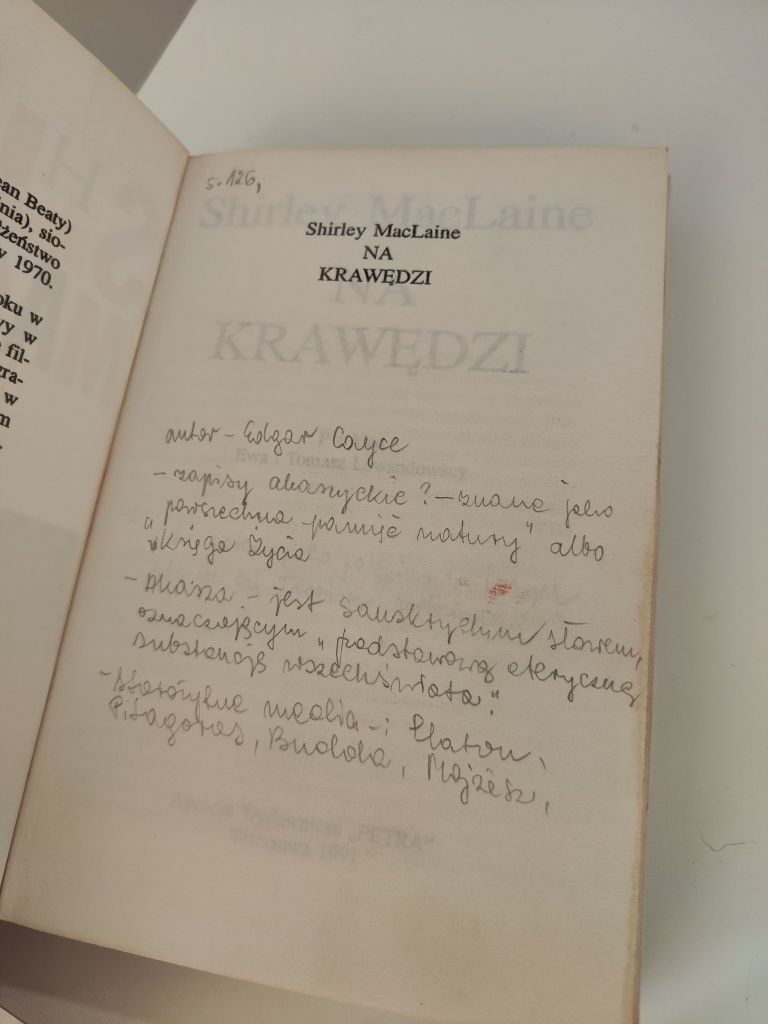 ean Beaty)
nia), sio-
żeństwo
y 1970.
oku w
vy w
fil-
gra-
w
m
s. 126,
Shirley MacLaine
NA
KRAWĘDZI
Shirley MacLaine
NA
KRAWĘDZI
autor - Edgar Cayce
Ewa i Tomasz Lewandowscy
- zapisy akaszyckie ? - znane jako
"powszechna pamięć natury" albo
"Księga Życia
- Akasza - jest sanskryckim słowem,
oznaczającym "podstawową eteryczną
substancję wszechświata".
- starożytne media - : Platon,
Pitagoras, Budda, Mojżesz,
Agencja Wydawnicza "PETRA"
Warszawa 1991